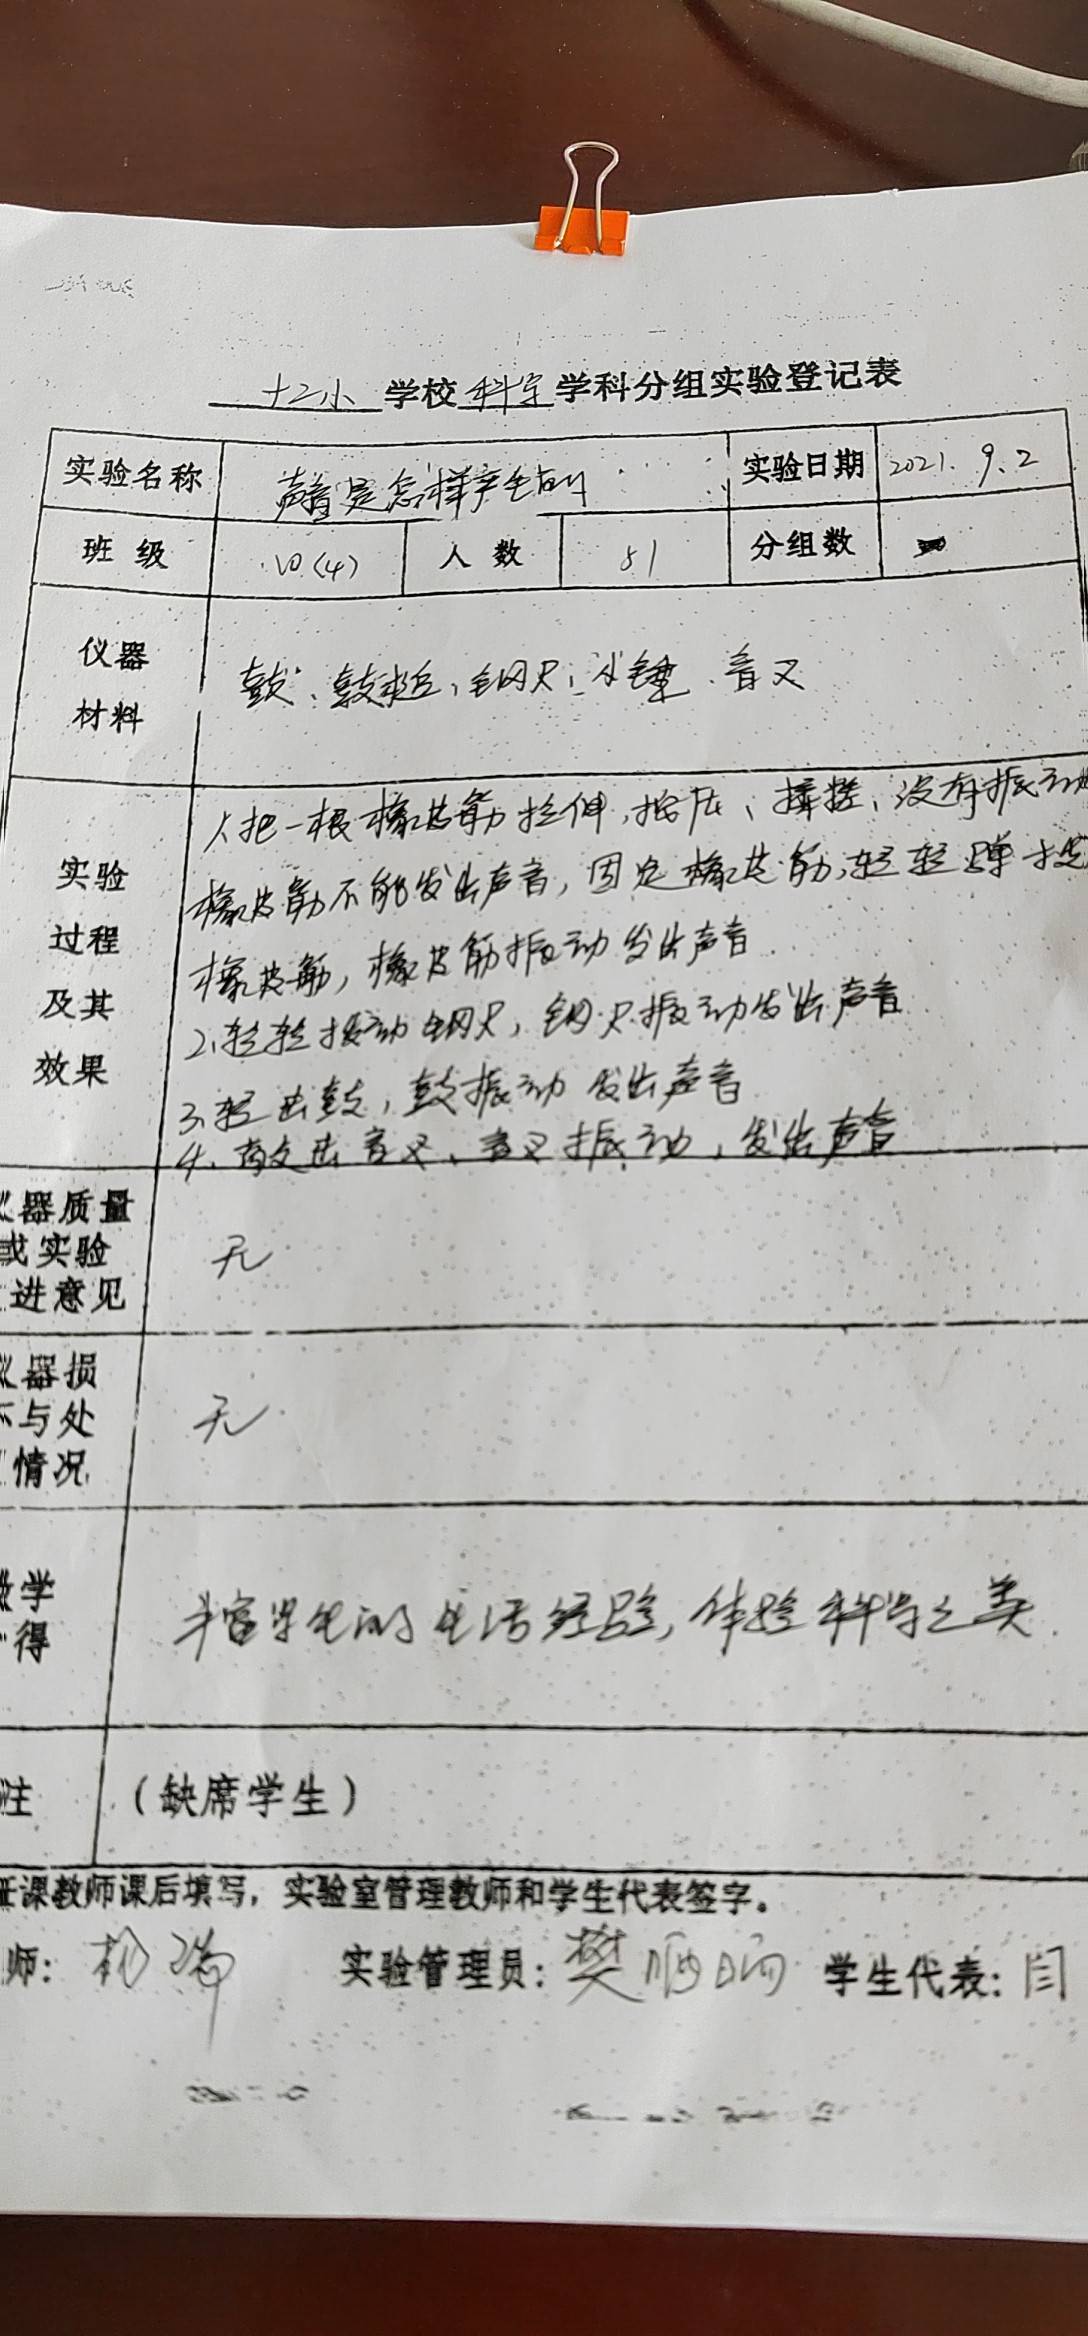 十二小 学校 科学 学科分组实验登记表
实验名称 声音是怎样产生的 实验日期 2021.9.2
班级 四(4) 人数 81 分组数
仪器
材料
鼓、鼓槌、钢尺、小锤、音叉
实验
过程
及其
效果
1.把一根橡皮筋拉伸,按压、揉搓、没有振动
橡皮筋不能发出声音,因定橡皮筋,轻轻弹拨
橡皮筋,橡皮筋振动发出声音
2.轻轻拨动钢尺,钢尺振动发出声音
3.轻击鼓,鼓振动 发出声音
4.敲击音叉、音叉振动,发出声音
仪器质量
或实验
进意见
无
仪器损
坏与处
情况
无
教学
得
丰富学生的生活经验,体验科学之美
注 (缺席学生)
任课教师课后填写,实验室管理教师和学生代表签字。
师: 实验管理员:樊 学生代表:闫